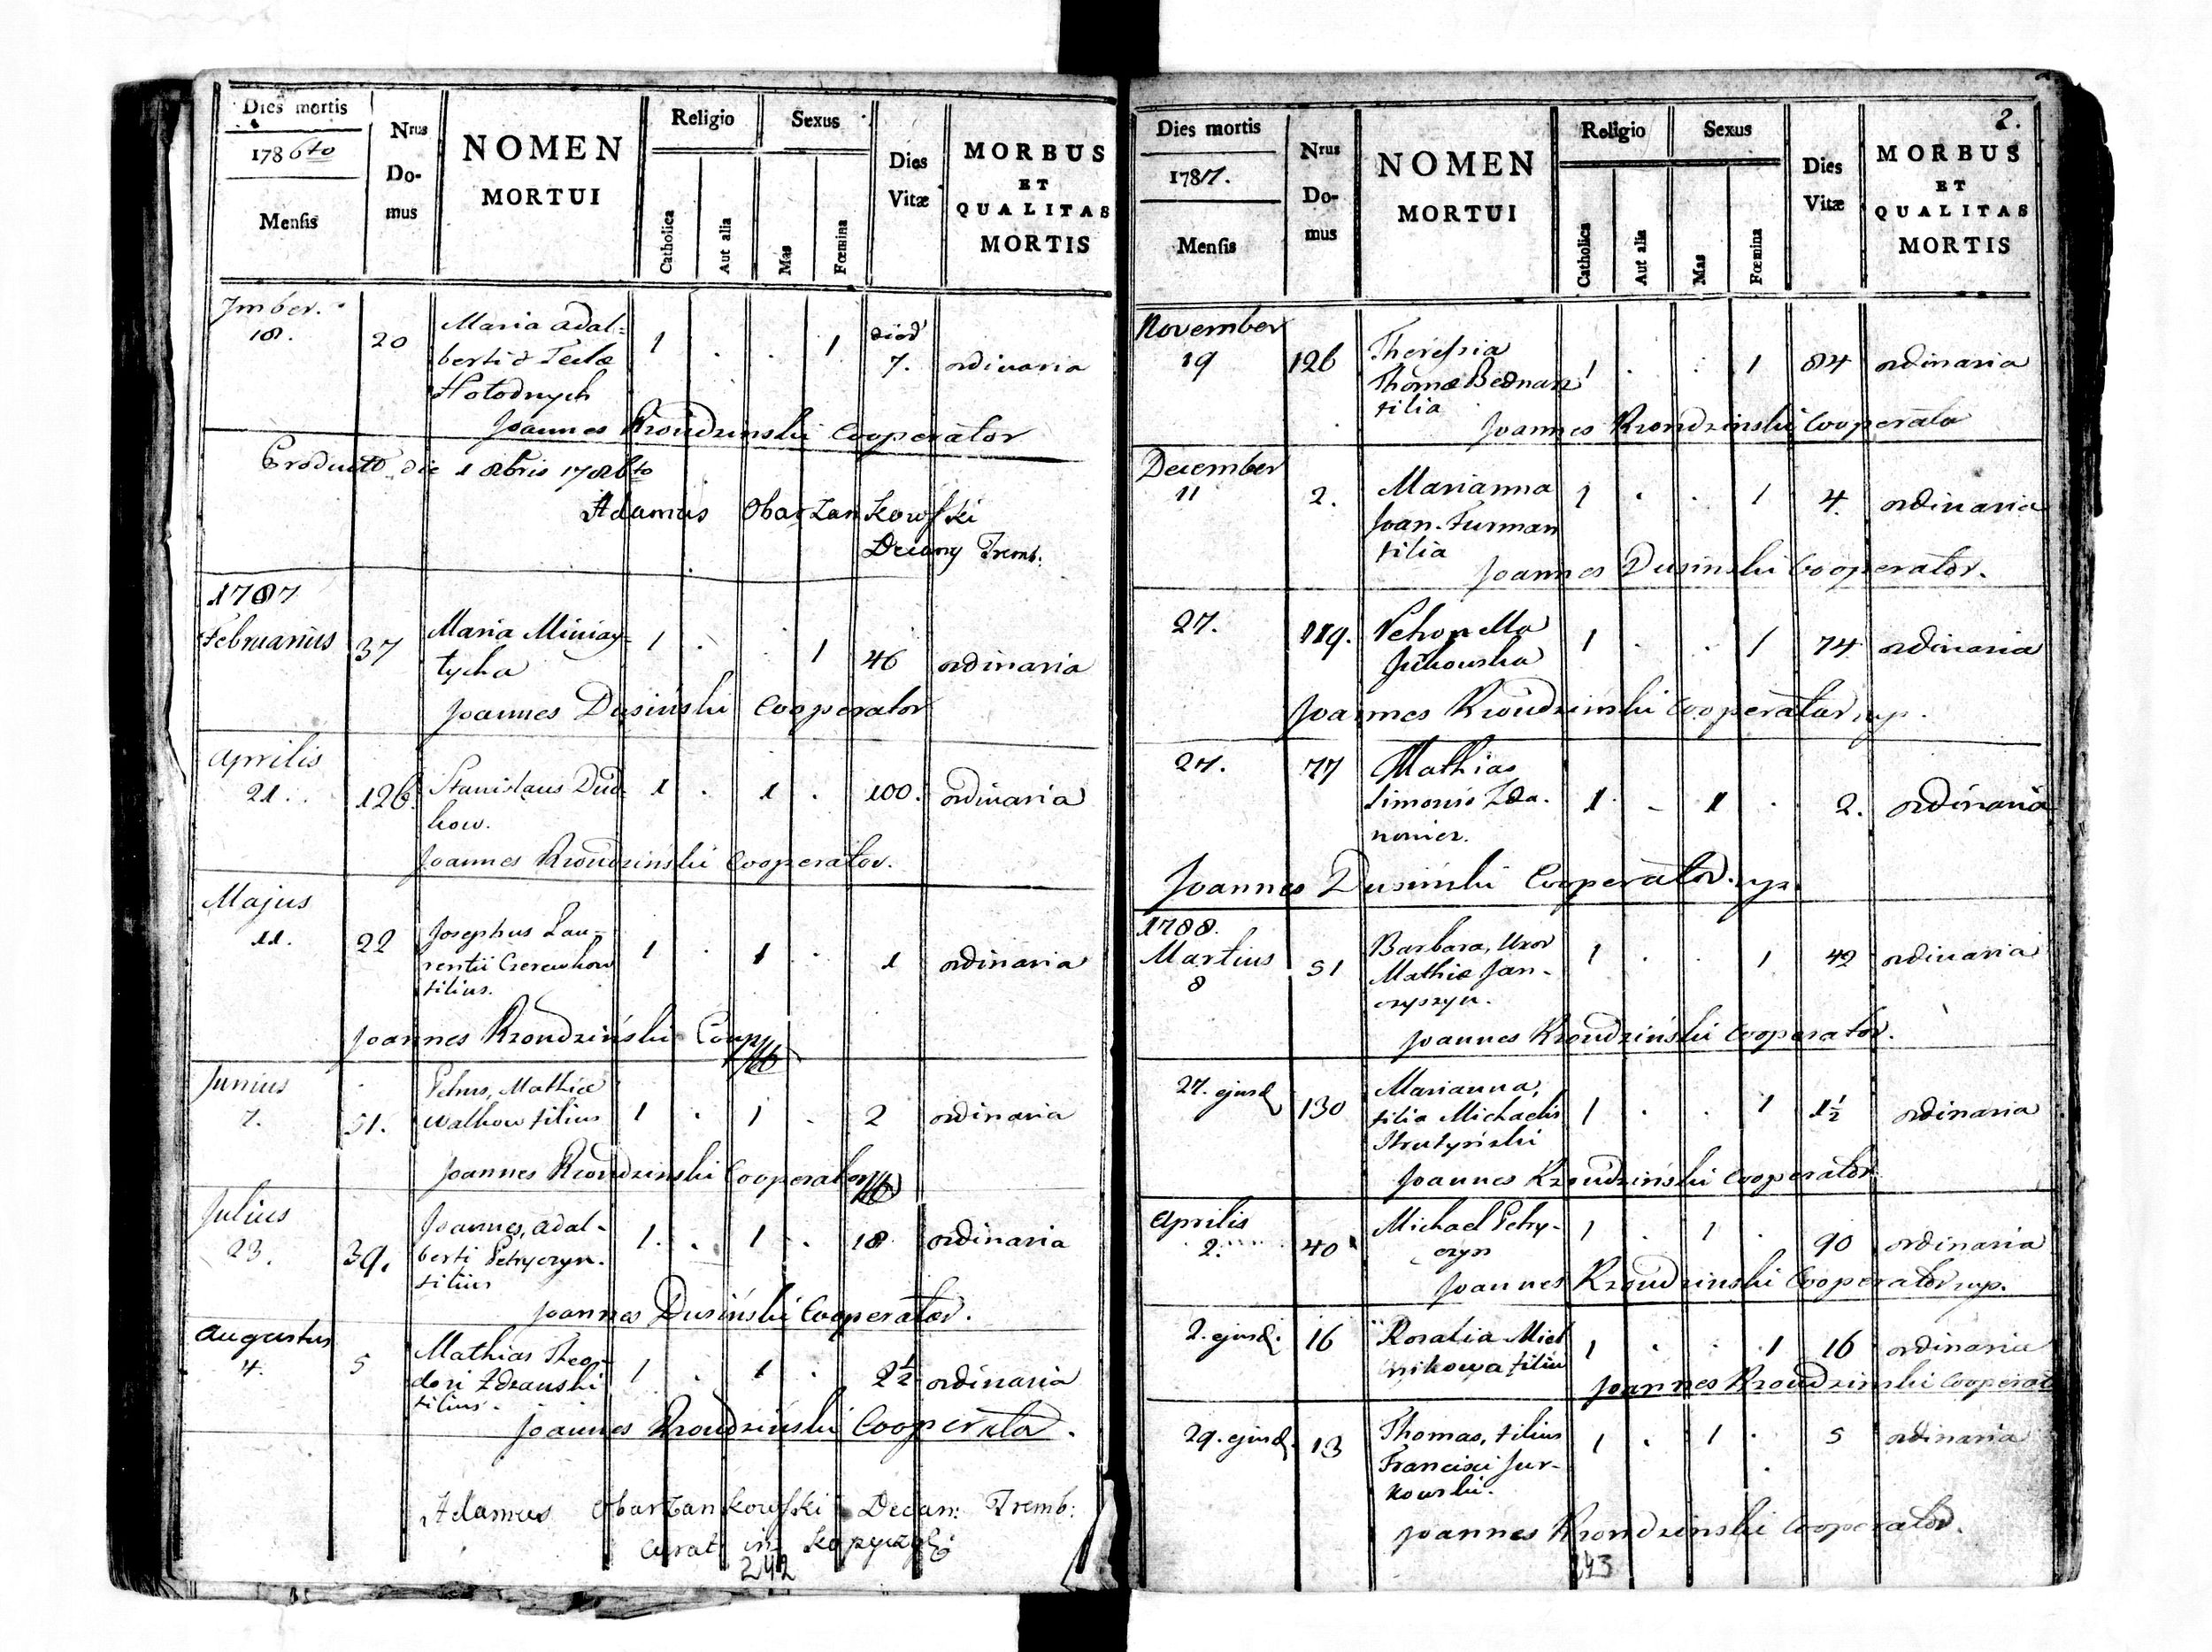 Dies mortis
1786to
Mensis
Nrus
Do-
mus
NOMEN
MORTUI
Religio
Catholica
Aut alia
Sexus
Mas
Fœmina
Dies
Vitæ
MORBUS
ET
QUALITAS
MORTIS
7mber.
18.
20
Maria Adal=
berti & Teclæ
Hołodnych
1 . . 1
7.
ordinaria
Joannes Rzondzinski Cooperator
die 1 8bris 1786to
Adamus Obarzankowski
Tremb:
1787
Februarius
37
Maria Miniay-
tycha
1 . . 1
46
ordinaria
Joannes Dusiński Cooperator
Aprilis
21.
126.
Stanislaus Dud
kow.
1 . 1 .
100.
ordinaria
Joannes Rzondziński Cooperator.
Majus
11.
22
Josephus Lau-
rentii Czerewkow
filius.
1 . 1 .
1
ordinaria
Joannes Rzondziński Coop
Junius
7.
51.
Petrus, Mathiæ
Walkow filius
1 . 1 .
2
ordinaria
Joannes Rzondzinski Cooperator
Julius
23.
39.
Joannes, Adal-
berti Petryczyn.
filius
1. . 1 .
18
ordinaria
Joannes Dusiński Cooperator.
Augustus
4.
5
Mathias Theo-
dori Zdzanski
filius.
1 . 1 .
2½
ordinaria
Joannes Rzondziński Cooperator.
Adamus Obarzankowski Decan: Tremb:
Curat in
242
2.
Dies mortis
1787.
Mensis
Nrus
Do-
mus
NOMEN
MORTUI
Religio
Catholica
Aut alia
Sexus
Mas
Fœmina
Dies
Vitæ
MORBUS
ET
QUALITAS
MORTIS
November
19
126
Theresia
Thomæ Bednarz
filia
1 . . 1
84
ordinaria
Joannes Rzondzinski Cooperato
December
11
2.
Marianna
Joan. Furman
filia
1 . . 1
4.
ordinaria
Joannes Dusinski Cooperator.
27.
119.
Petronella
1 . . 1
74
ordinaria
Joannes Rzondzinski Cooperator mp.
27.
77
Mathias
Simonis Zda.
nowicz.
1 . 1 .
2.
ordinaria
Joannes Dusiński Cooperator. mp.
1788.
Martius
8
51
Barbara, Uxor
Mathiæ Jan-
czyszyn.
1 . . 1
42
ordinaria
Joannes Rzondziński Cooperator.
27. ejusd
130
Marianna,
filia Michaelis
Strutyński
1 . . 1
1½
ordinaria
Joannes Rzondziński Cooperator
Aprilis
2.
40
Michael Petry-
czyn
1 . 1 .
90
ordinaria
Joannes Rzondzinski Cooperator mp.
2. ejusd.
16
Rosalia Miel
nikowa filia
1 . . 1
16
ordinaria
Joannes Rzondzinski Cooperato
29. ejusd.
13
Thomas, filius
Francisci Jur-
kowski.
1 . 1 .
5
ordinaria
Joannes Rzondzinski Cooperator.
243